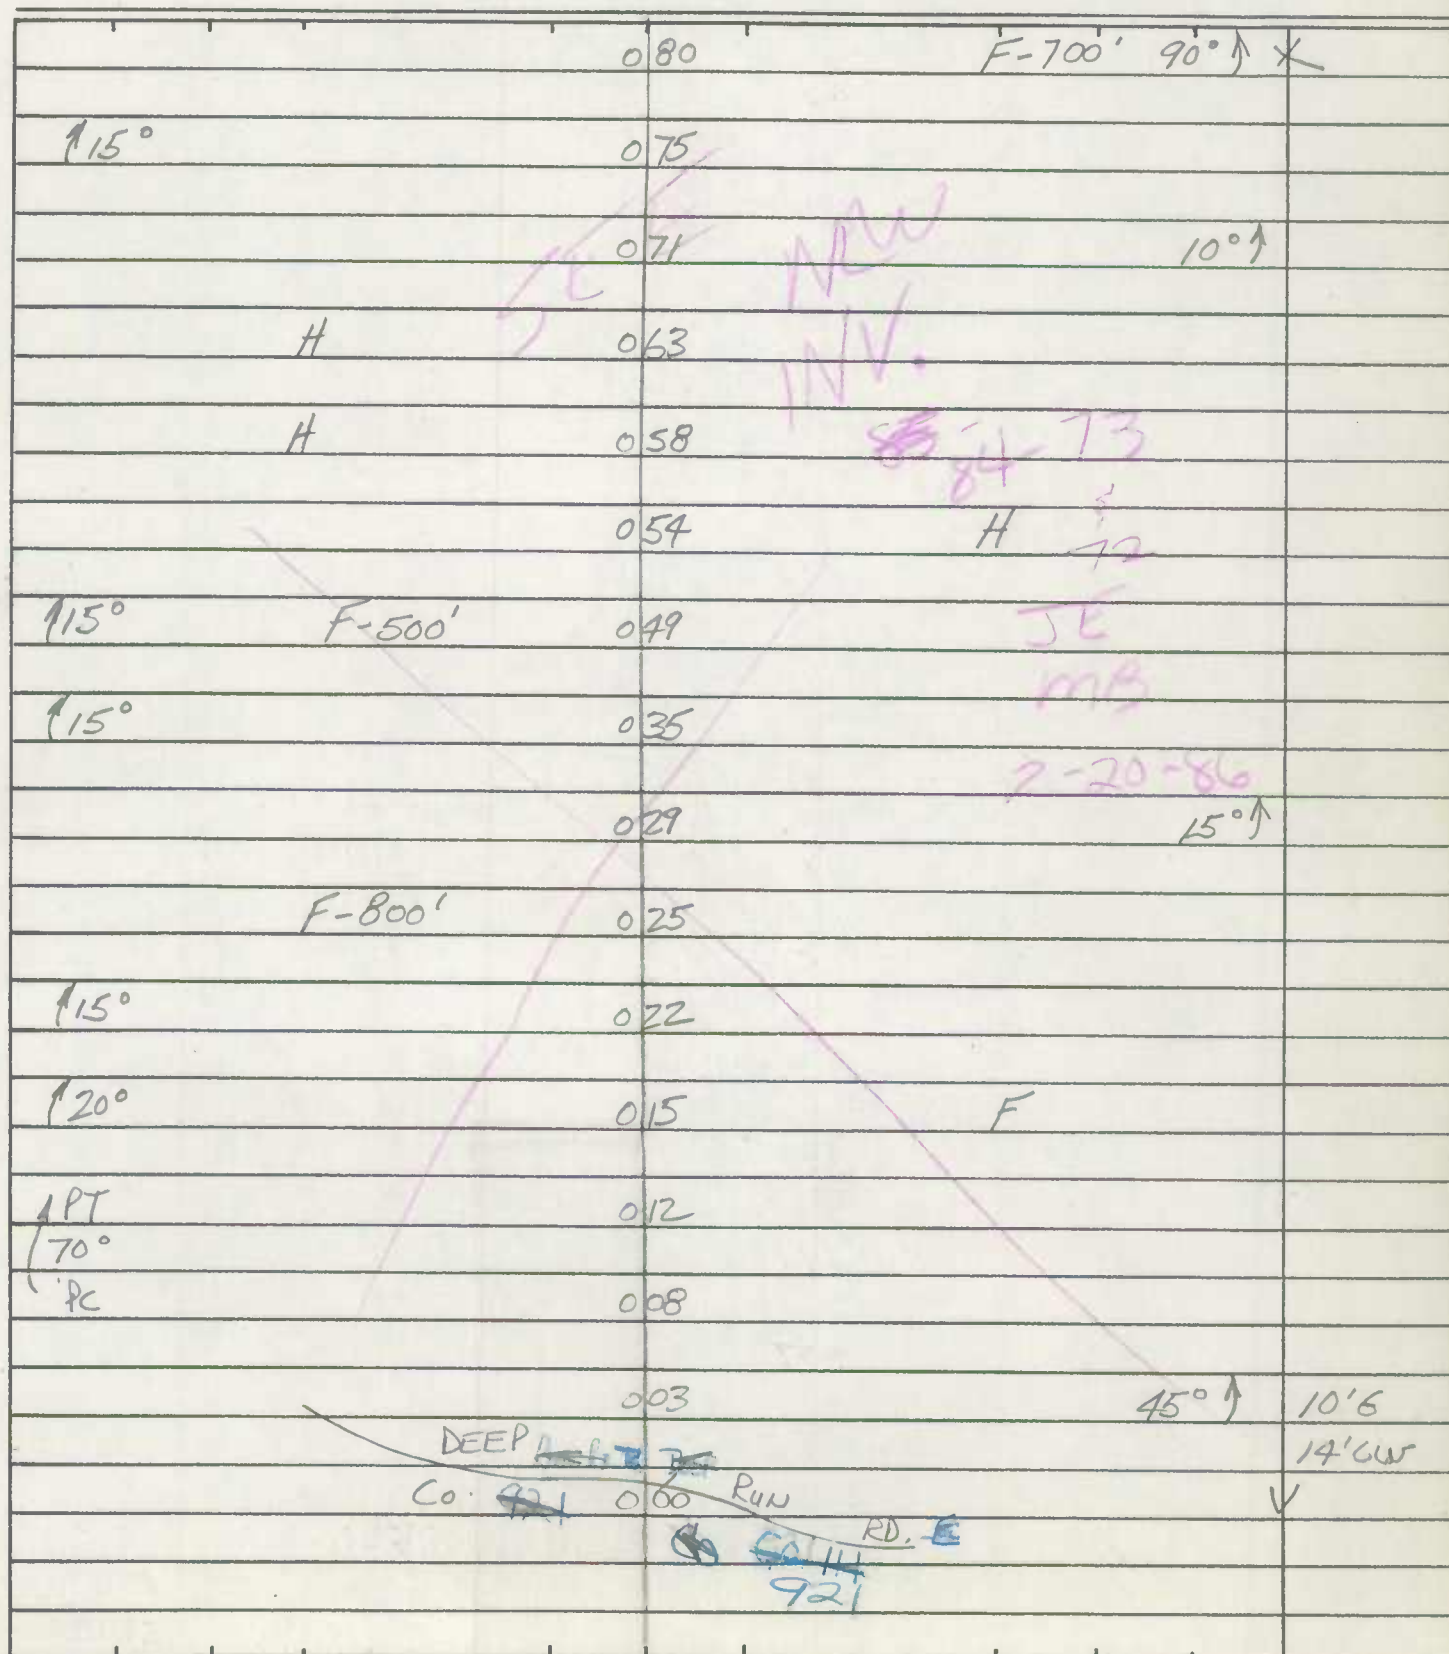 0 80 F-700' 90° ↑ X
↑ 15° 0 75
NEW
0 71 10° ↑
H 0 63
INV.
H 0 58
84-73
0 54 H
72
↑ 15° F-500' 0 49
JE
MB
↑ 15° 0 35
2-20-86
0 29 15° ↑
F-800' 0 25
↑ 15° 0 22
↑ 20° 0 15 F
PT 0 12
70°
PC 0 08
0 03 45° ↑ 10'6
DEEP 14'
Co. 921 0 00 RUN
RD. E
Co 14
921